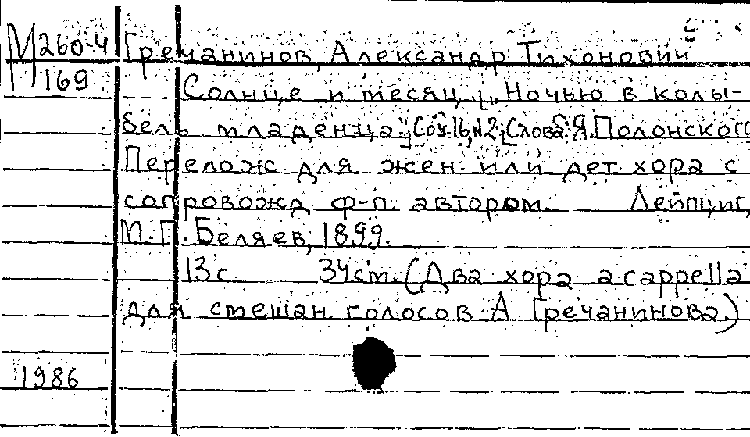 М 260-4 Гречанинов, Александр Тихонович
169 Солнце и месяц. „Ночью в колы-
бель младенца." Соч.16, №2. Слова Я. Полонского
Перелож для жен или дет хора с
сопровожд ф-п. автором. Лейпциг,
М. П. Беляев, 1899.
13 с 34 cm. (Два хора a cappella
для смешан. голосов А Гречанинова.)
1986